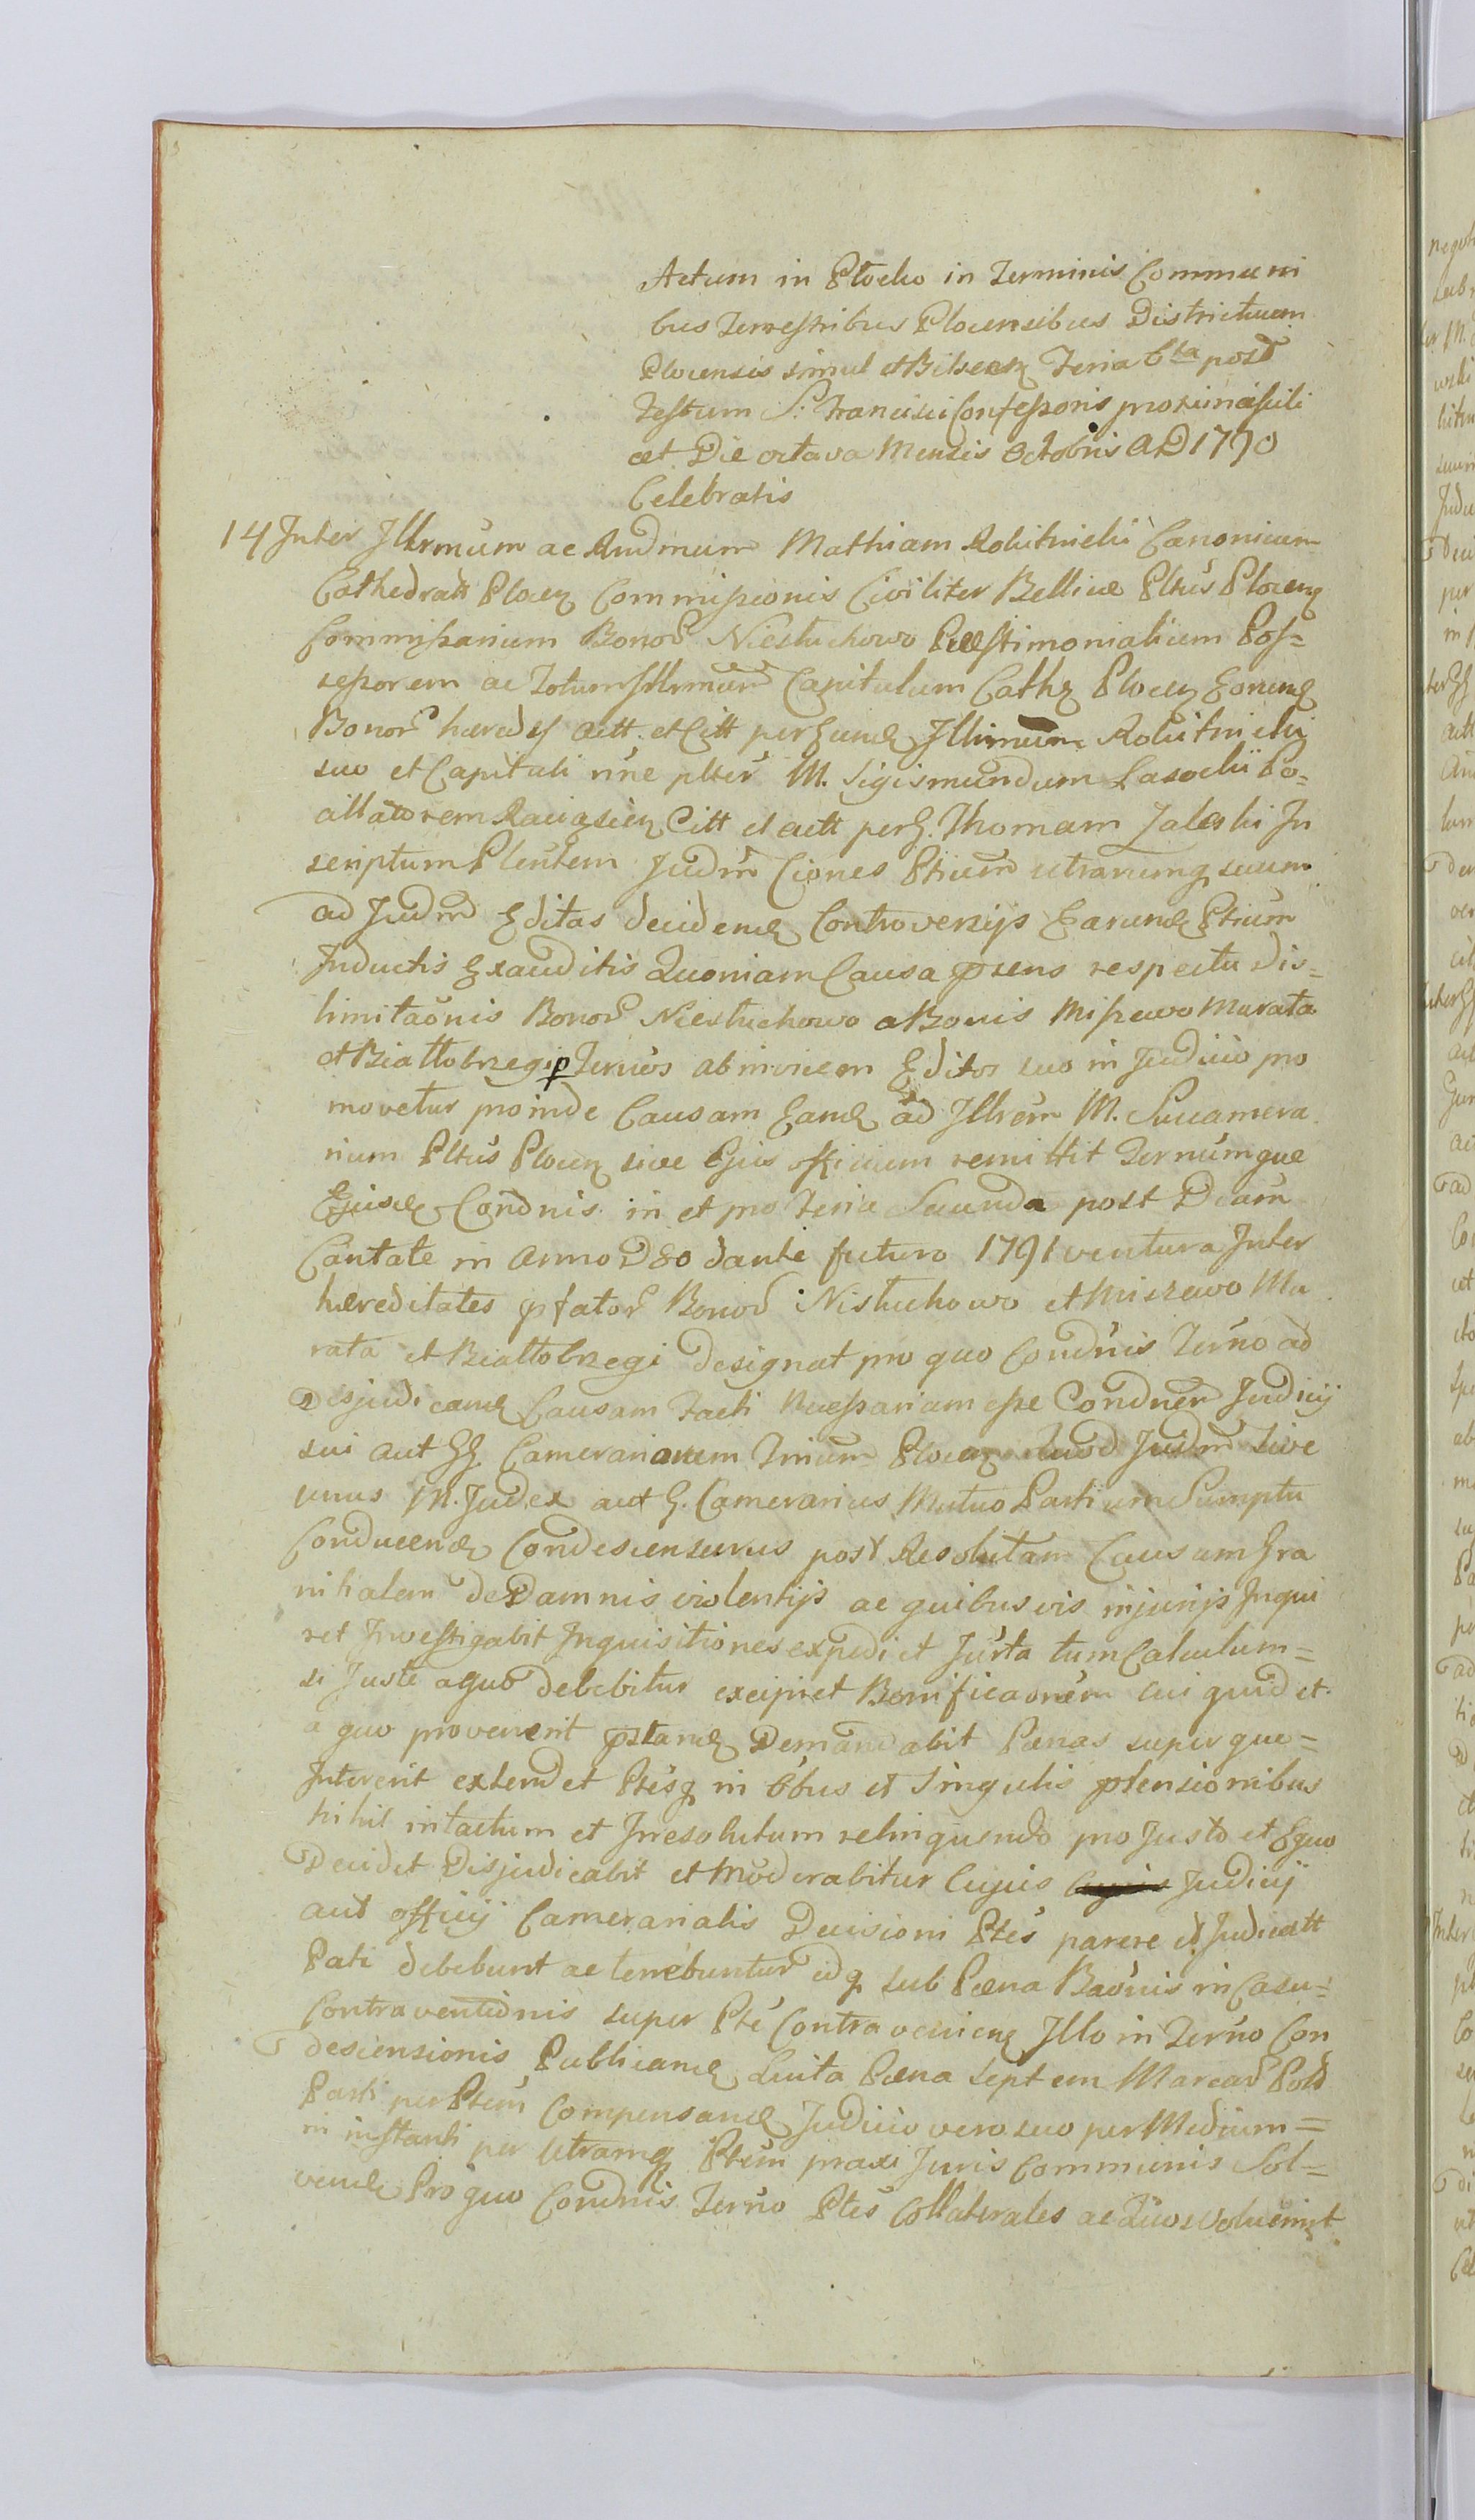 Actum in Płocko in Terminis Communi
bus Terrestribus Plocensibus Districtuum
Plocensis simul et Bilscen Feria 6ta post
Festum S: Francisci Confessoris proxima scili
cet Die octava Mensis Octobris AD 1790
Celebratis
14 Inter Illrmum ac Rndmum Mathiam Rokitnicki Canonicum
Cathedralt Plocen Commissionis Civiliter Bellicæ Pltus Plocen
Commissarium Bonor Niestuchowo Præstimonialium Pos=
sessorem ac Totum Illrmum Capitulum Cathn Plocen Eorund
Bonor hæredes Actt et Citt per Eund Illrmum Rokitnicki
suo et Capituli nne plter M. Sigismundum Lasocki Po=
cillatorem Raciązien Citt et actt per G. Thomam Zaleski In
scriptum Plentem Judm Ciones Ptium utrarumq suum
ad Judm Editas decidend Controversijs Earund Ptium
Inductis Exauditis Quoniam Causa præns respectu dis=
limitaonis Bonor Niestuchowo a Bonis Miszewo Murata
et Białłobrzegi p Ternos abinvicem Editos suo in Judicio pro
movetur proinde Causam Eand ad Illrem M. Succamera
rium Pltus Plocen sive Ejus officium remittit Ternumque
Ejusd Condnis in et pro Feria Secunda post Dcam
Cantate in Anno Dso dante futuro 1791 ventura Inter
hæreditates præfator Bonor Nistuchowo et Miszewo Mu
rata et Białłobrzegi designat pro quo Condnis Terno ad
Disjudicand Causam Facti Necessariam esse Condnen Judicij
sui aut GG. Camerariorum Trium Plocen Quod Judm sive
unus M. Judex aut G. Camerarius Mutuo Partium Sumptu
Conducend Condescensurus post Resolutam Causam Gra
nitialem de Damnis violentijs ac quibusvis injurijs Inqui
ret Investigabit Inquisitiones expediet Jurta tum Calculum=
si Juste a quo debebitur excipiet Bonificaonem cui quid et
a quo provenerit præstand Demandabit Pænas super quo=
Intererit extendet Ptesq in Obus et Singulis prætensionibus
nihil intactum et Irresolutum relinquendo pro Justo et Equo
Decidet Disjudicabit et Moderabitur Cujus Judicij
aut officij Camerarialis Decisioni Ptes parere et Judicatt
Pati debebunt ac tenebuntur idq sub Pæna Baonis in Casu=
Contraventionis super Pte Contravenien Illo in Terno Con
descensionis Publicand Luita Pæna septem Marcar Pold
Parti per Ptem Compensand Judicio vero suo per Medium=
in instanti per utramq Ptem praxi Juris Communis Sol=
vend Pro quo Condnis Terno Ptes Collaterales ac Quos voluerint